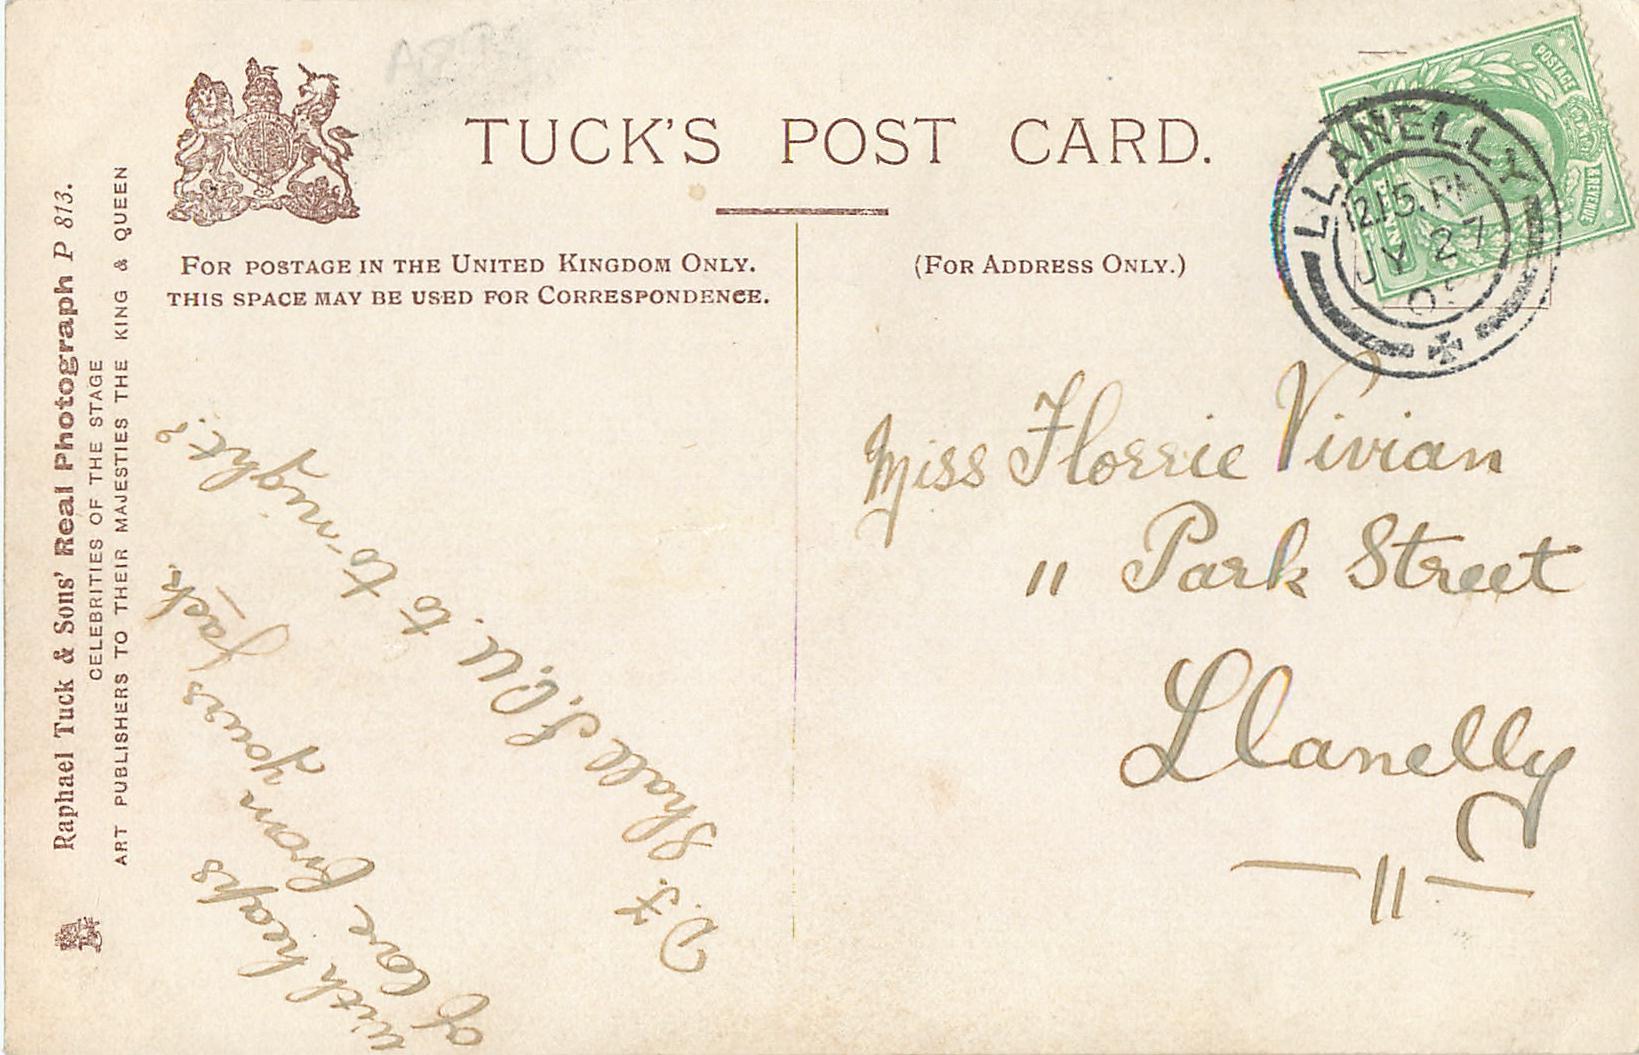 TUCK'S POST CARD.
FOR POSTAGE IN THE UNITED KINGDOM ONLY.
THIS SPACE MAY BE USED FOR CORRESPONDENCE.
(FOR ADDRESS ONLY.)
Raphael Tuck & Sons' Real Photograph P 813.
CELEBRITIES OF THE STAGE
ART PUBLISHERS TO THEIR MAJESTIES THE KING & QUEEN
POSTAGE
& REVENUE
LLANELLY
12.15.PM
JY 27
D.F. Shall I. C. U. to to-night?
With heaps
of love from yours Jack.
Miss Florrie Vivian
11 Park Street
Llanelly